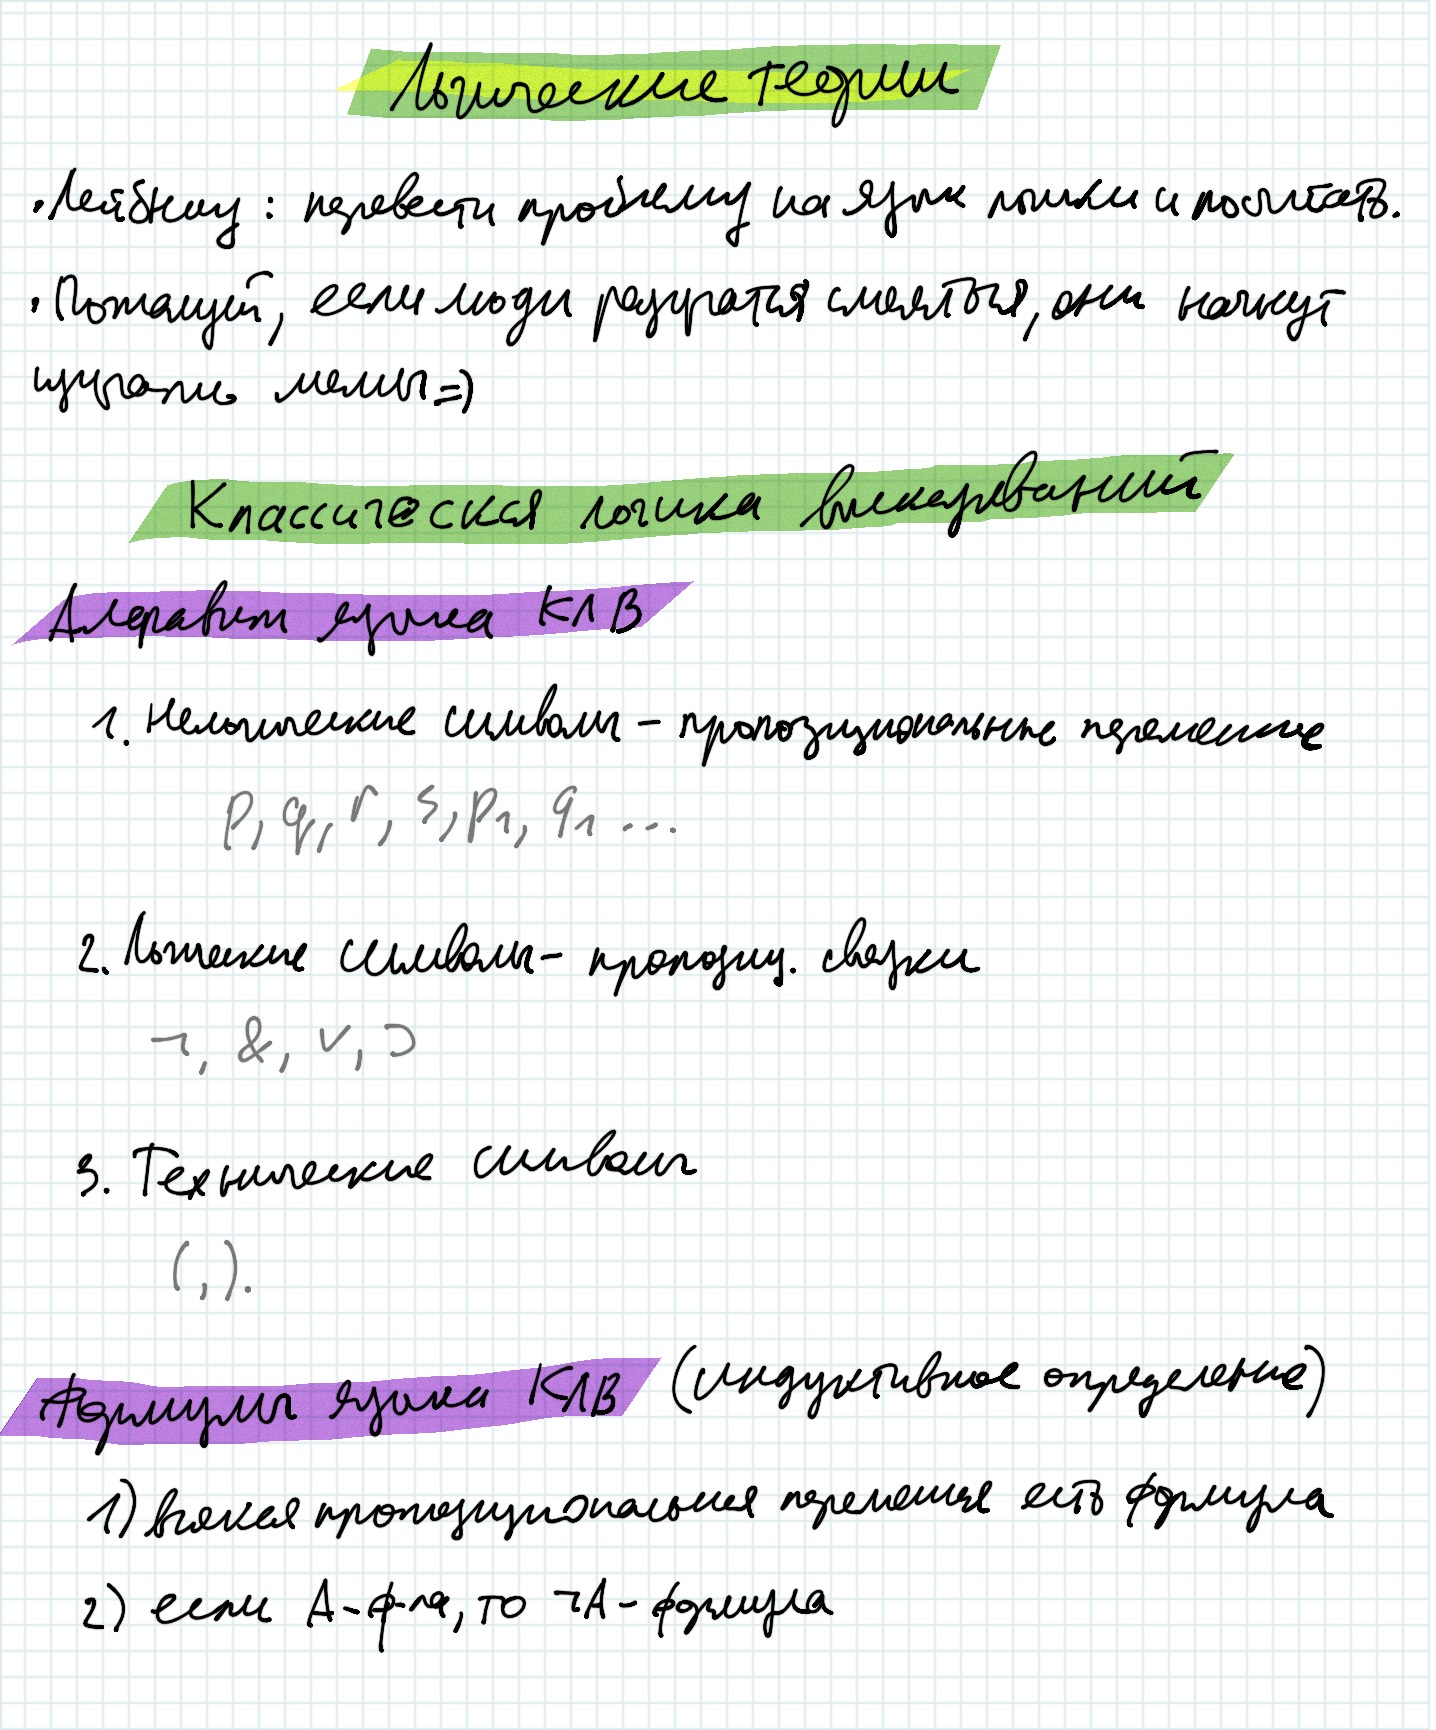 Логические теории
· Лейбниц: перевести проблему на язык логики и посчитать.
· Пожалуй, если люди разучатся смеяться, они начнут
изучать мемы =)
Классическая логика высказываний
Алфавит языка КЛВ
1. Нелогические символы – пропозициональные переменные
p, q, r, s, p₁, q₁ ...
2. Логические символы – пропозиц. связки
¬, &, ∨, ⊃
3. Технические символы
(, ).
Формулы языка КЛВ (индуктивное определение)
1) всякая пропозициональная переменная есть формула
2) если A – ф-ла, то ¬A – формула